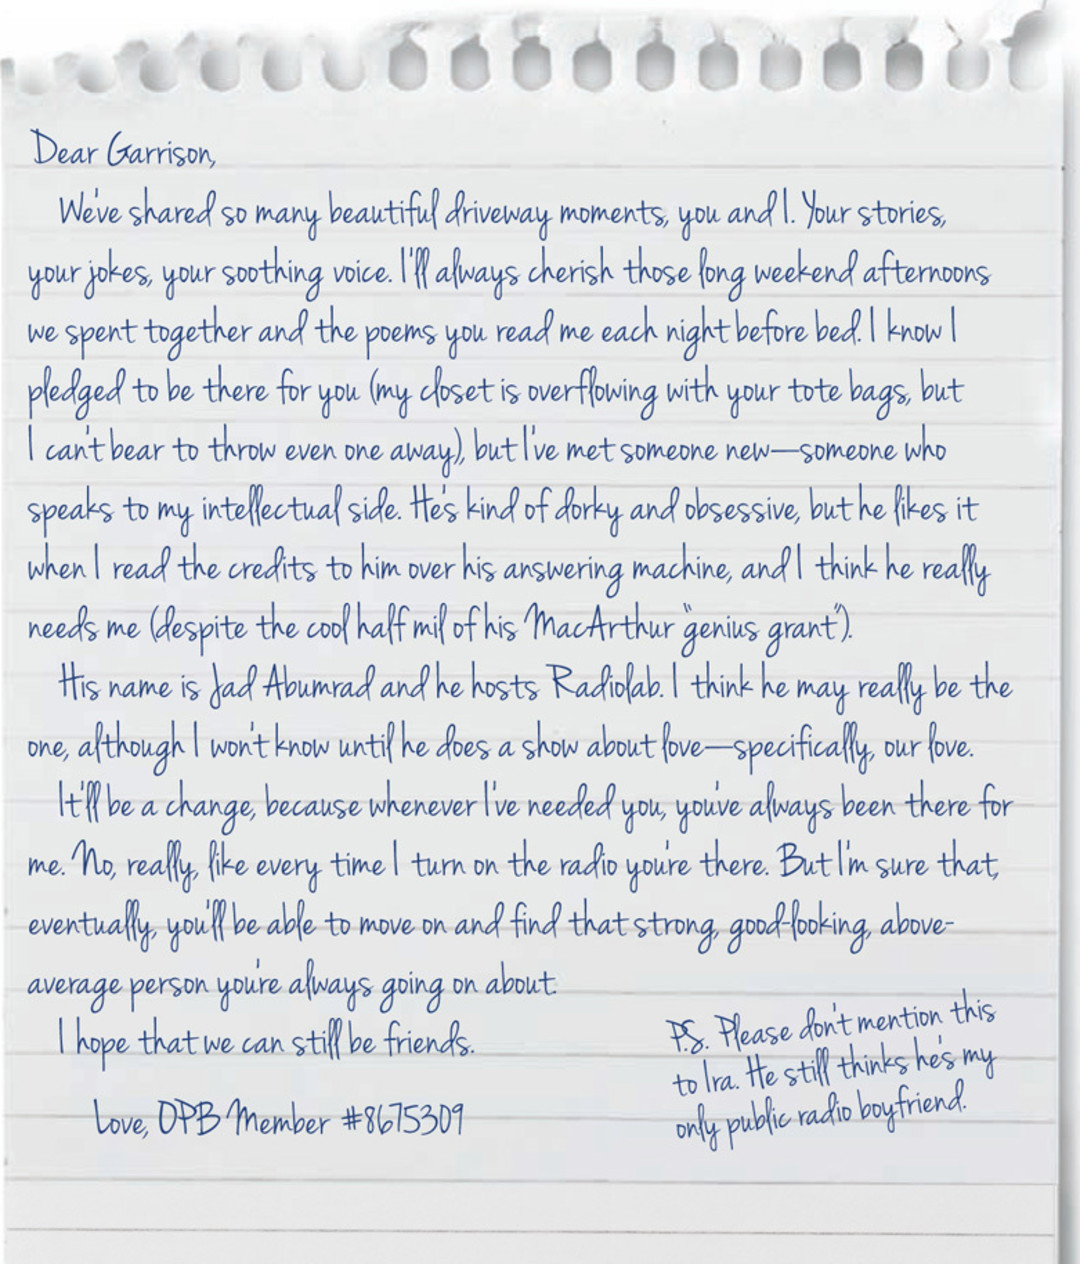 Dear Garrison,
We've shared so many beautiful driveway moments, you and I. Your stories,
your jokes, your soothing voice. I'll always cherish those long weekend afternoons
we spent together and the poems you read me each night before bed. I know I
pledged to be there for you (my closet is overflowing with your tote bags, but
I can't bear to throw even one away), but I've met someone new—someone who
speaks to my intellectual side. He's kind of dorky and obsessive, but he likes it
when I read the credits to him over his answering machine, and I think he really
needs me (despite the cool half mil of his MacArthur "genius grant").
His name is Jad Abumrad and he hosts Radiolab. I think he may really be the
one, although I won't know until he does a show about love—specifically, our love.
It'll be a change, because whenever I've needed you, you've always been there for
me. No, really, like every time I turn on the radio you're there. But I'm sure that,
eventually, you'll be able to move on and find that strong, good-looking, above-
average person you're always going on about.
I hope that we can still be friends.
Love, OPB Member #8675309
P.S. Please don't mention this
to Ira. He still thinks he's my
only public radio boyfriend.